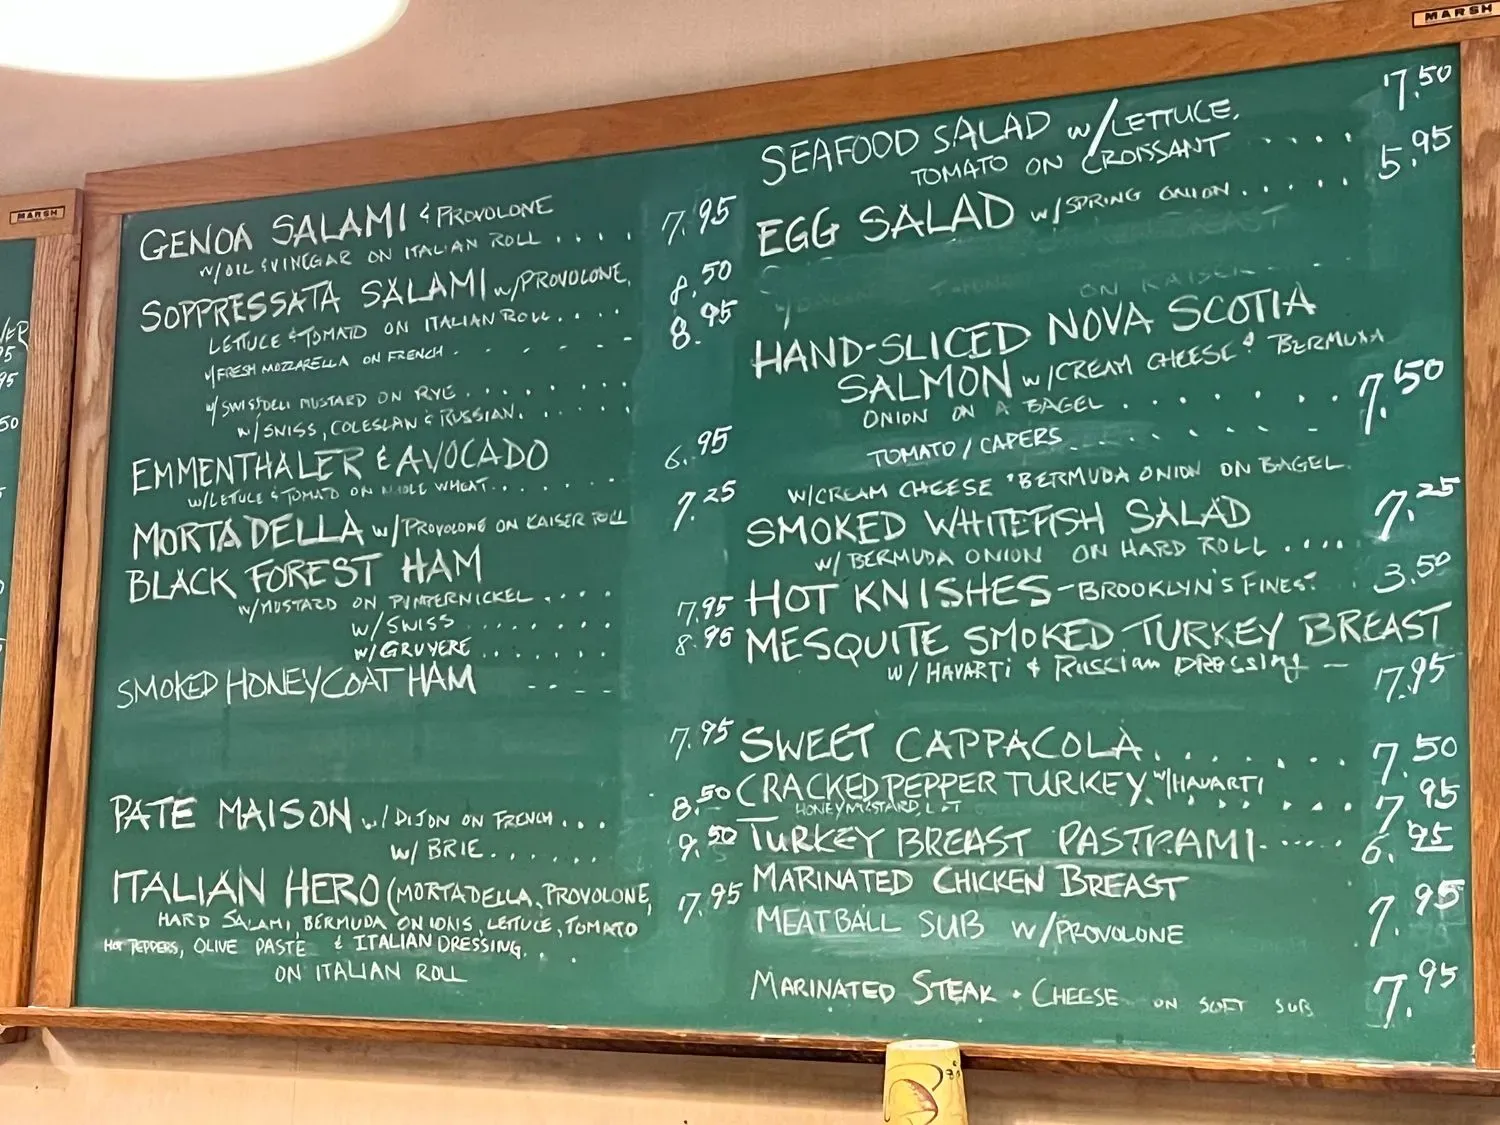 MARSH
MARSH
GENOA SALAMI & PROVOLONE
W/OIL & VINEGAR ON ITALIAN ROLL .... 7.95
SOPPRESSATA SALAMI W/PROVOLONE, 8.50
LETTUCE & TOMATO ON ITALIAN ROLL.... 8.95
W/FRESH MOZZARELLA ON FRENCH - - - - -
W/SWISS DELI MUSTARD ON RYE.......
W/SWISS, COLESLAW & RUSSIAN......
EMMENTHALER & AVOCADO 6.95
W/LETTUCE & TOMATO ON WHOLE WHEAT....... 7.25
MORTADELLA W/PROVOLONE ON KAISER ROLL
BLACK FOREST HAM
W/MUSTARD ON PUMPERNICKEL .... 7.95
W/SWISS ........ 8.95
W/GRUYERE .......
SMOKED HONEYCOAT HAM - - - -
7.95
PATE MAISON W/ DIJON ON FRENCH ... 8.50
W/ BRIE...... 9.50
ITALIAN HERO (MORTADELLA, PROVOLONE, 7.95
HARD SALAMI, BERMUDA ONIONS, LETTUCE, TOMATO
HOT PEPPERS, OLIVE PASTE & ITALIAN DRESSING...
ON ITALIAN ROLL
SEAFOOD SALAD W/LETTUCE, 7.50
TOMATO ON CROISSANT .... 5.95
EGG SALAD W/SPRING ONION.....
ON KAISER
HAND-SLICED NOVA SCOTIA
SALMON W/CREAM CHEESE & BERMUDA
ONION ON A BAGEL ........ 7.50
TOMATO/CAPERS
W/CREAM CHEESE & BERMUDA ONION ON BAGEL
SMOKED WHITEFISH SALAD 7.25
W/BERMUDA ONION ON HARD ROLL .....
HOT KNISHES-BROOKLYN'S FINEST 3.50
MESQUITE SMOKED TURKEY BREAST
W/ HAVARTI & RUSSIAN DRESSING - 7.95
SWEET CAPPACOLA....... 7.50
CRACKED PEPPER TURKEY W/HAVARTI
HONEY MUSTARD, L & T ...... 7.95
TURKEY BREAST PASTRAMI...... 6.95
MARINATED CHICKEN BREAST
MEATBALL SUB W/PROVOLONE 7.95
MARINATED STEAK & CHEESE ON SOFT SUB 7.95